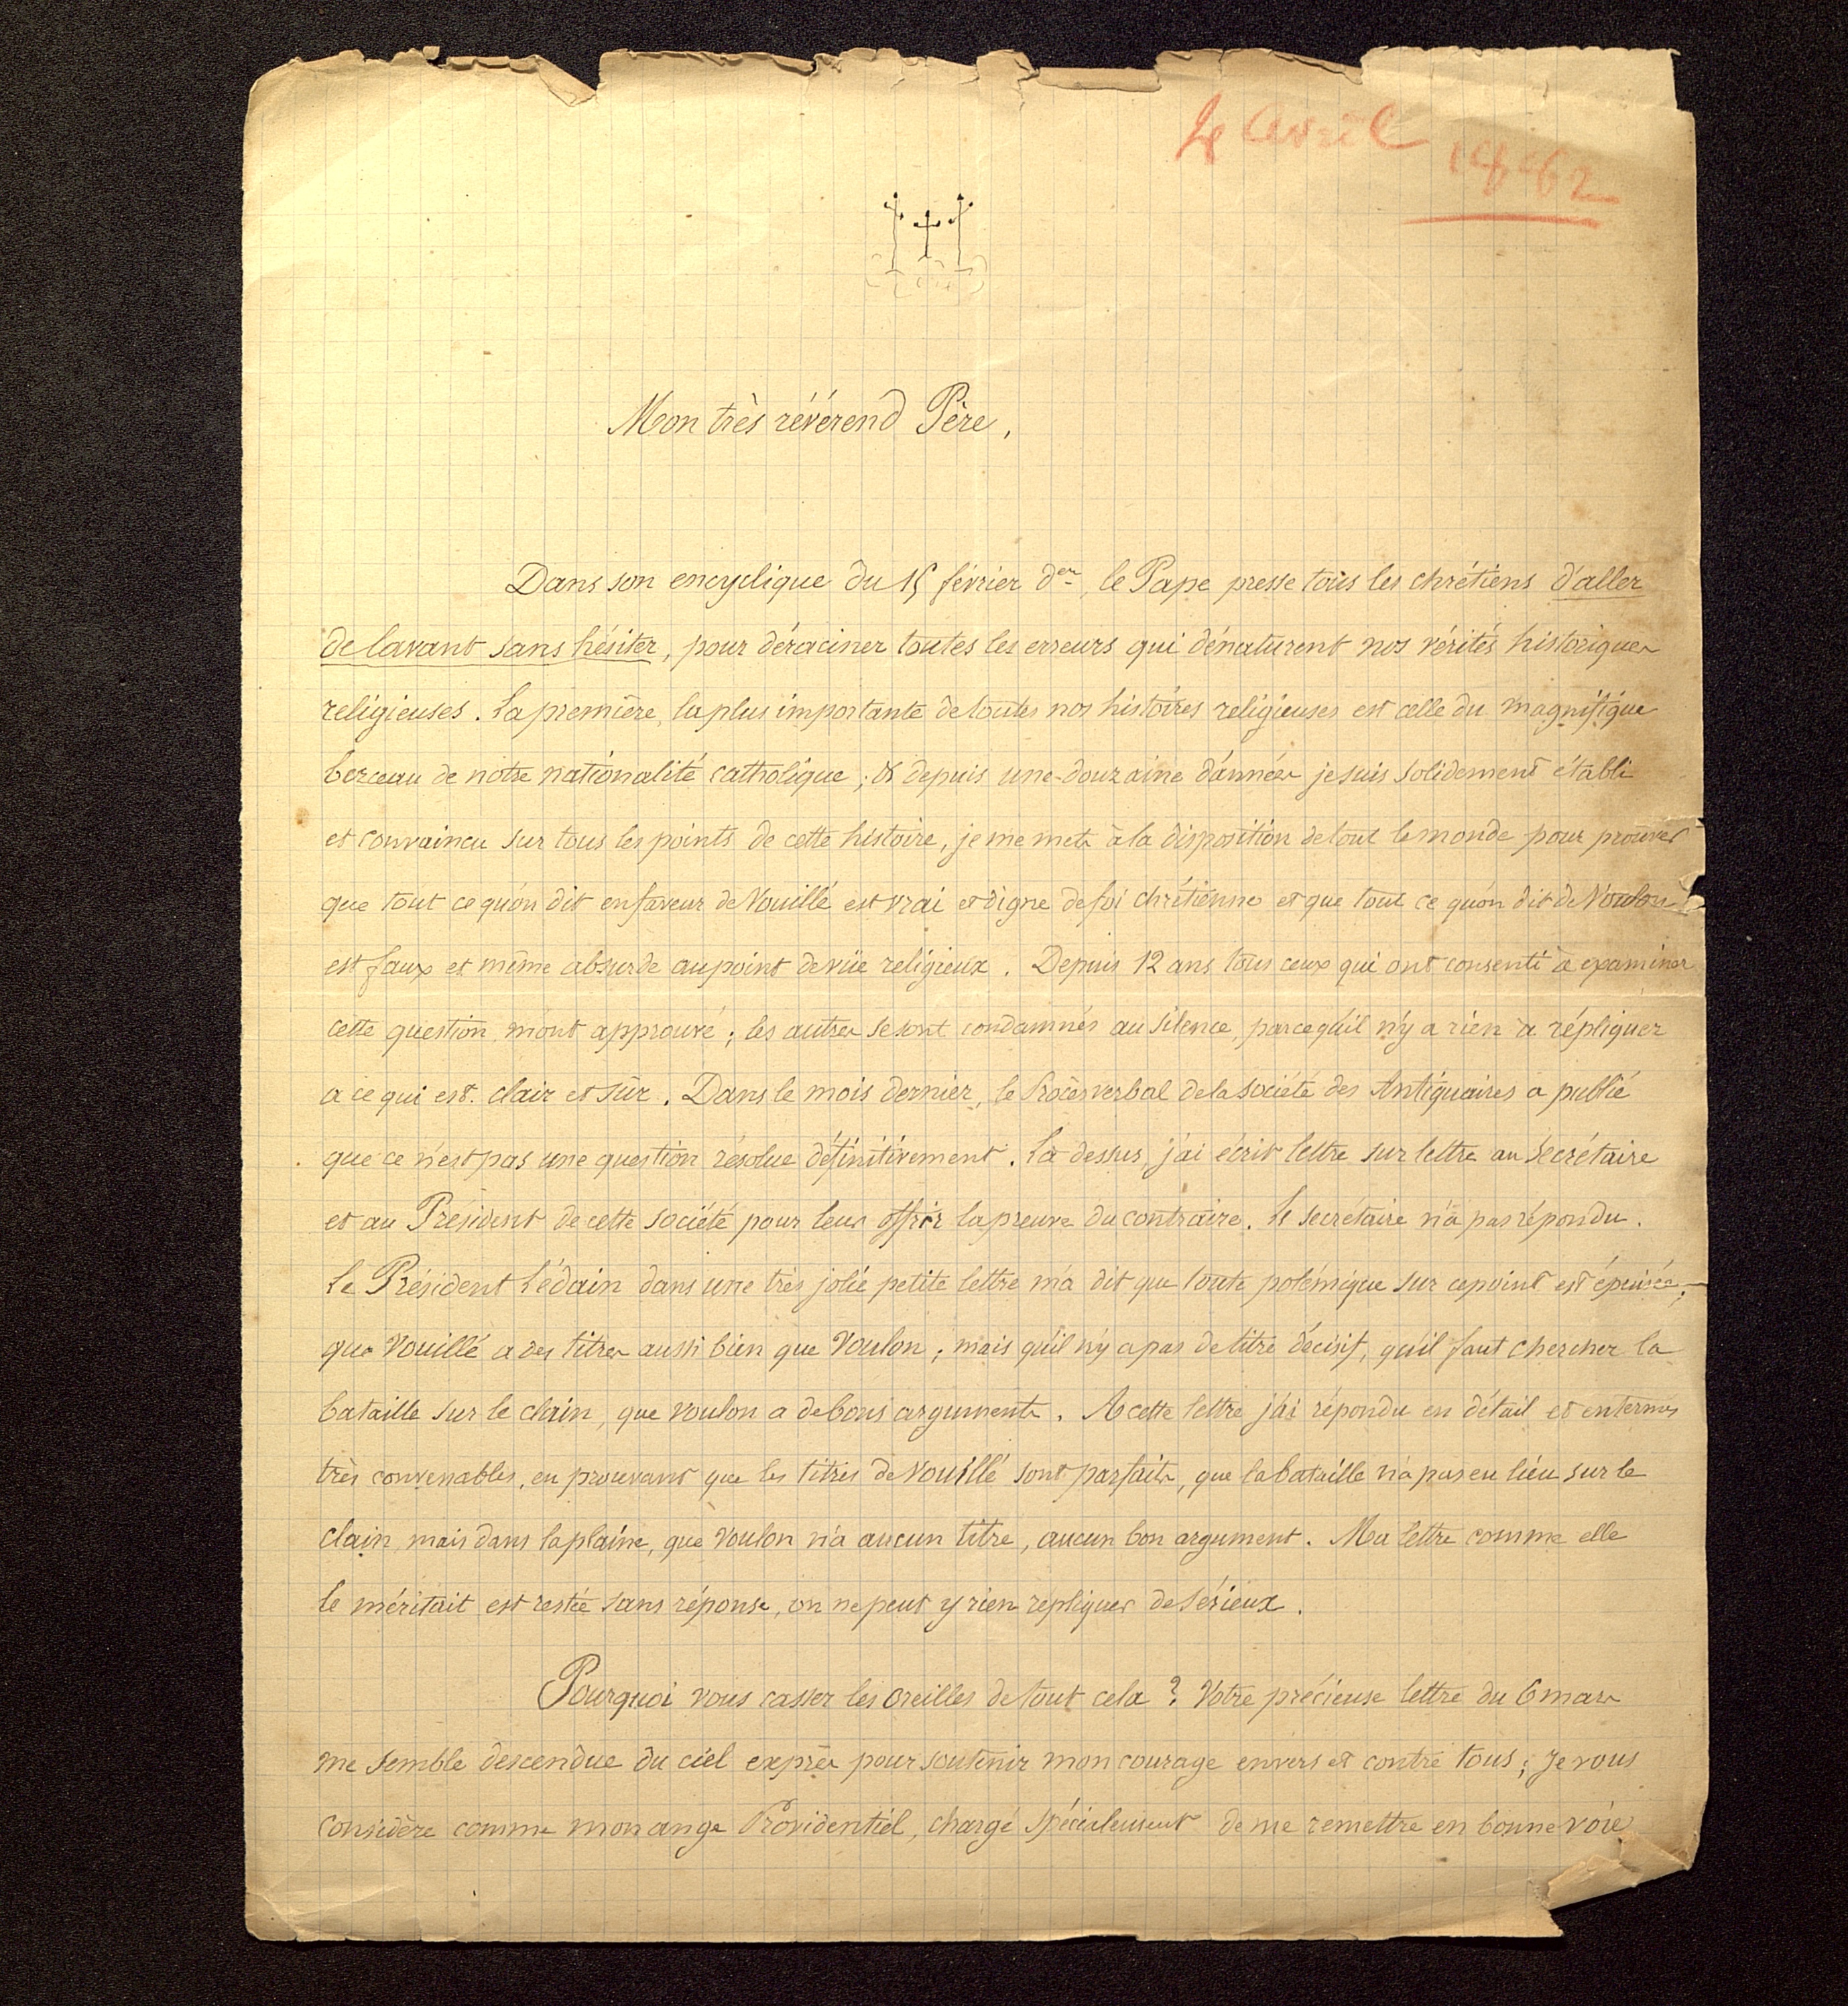 4 Avril
Mon très révérend Père,
Dans son encyclique du 15 février der, le Pape presse tous les chrétiens d'aller
de lavant sans hésiter, pour déraciner toutes les erreurs qui dénaturent nos vérités historiques
religieuses. La première, la plus importante de toutes nos histoires religieuses est celle du magnifique
berceau de notre nationalité catholique ; & depuis une douzaine d'années je suis solidement établi
et convaincu sur tous les points de cette histoire, je me mets à la disposition de tout le monde pour prouver
que tout ce qu'on dit en faveur de Vouillé est vrai et digne de foi chrétienne et que tout ce qu'on dit de Voulon
est faux et même absurde au point de vüe religieux. Depuis 12 ans tous ceux qui ont consenti à examiner
cette question, m'ont approuvé ; les autres se sont condamnés au silence, parcequ'il n'y a rien à répliquer
a ce qui est clair et sûr. Dans le mois dernier, le Procès verbal de la société des Antiquaires a publié
que ce n'est pas une question résolue définitivement. La dessus, j'ai écrit lettre sur lettre au Secrétaire
et au Président de cette société pour leur offrir la preuve du contraire. Le secrétaire n'a pas répondu.
Le Président Lédain dans une très jolie petite lettre m'a dit que toute polémique sur ce point est épuisée,
que Vouillé a des titres aussi bien que Voulon ; mais qu'il n'y a pas de titre décisif, qu'il faut chercher la
bataille sur le clain, que voulon a de bons arguments. A cette lettre j'ai répondu en détail et en termes
très convenables, en prouvant que les titres de Vouillé sont parfaits, que la bataille n'a pas eu lieu sur le
clain, mais dans la plaine, que Voulon n'a aucun titre, aucun bon argument. Ma lettre comme elle
le méritait est restée sans réponse, on ne peut y rien répliquer de sérieux.
Pourquoi vous casser les oreilles de tout cela ? Votre précieuse lettre du 6 mars
me semble descendue du ciel exprès pour soutenir mon courage envers et contre tous ; Je vous
considère comme mon ange Providentiel, chargé spécialement de me remettre en bonne voie